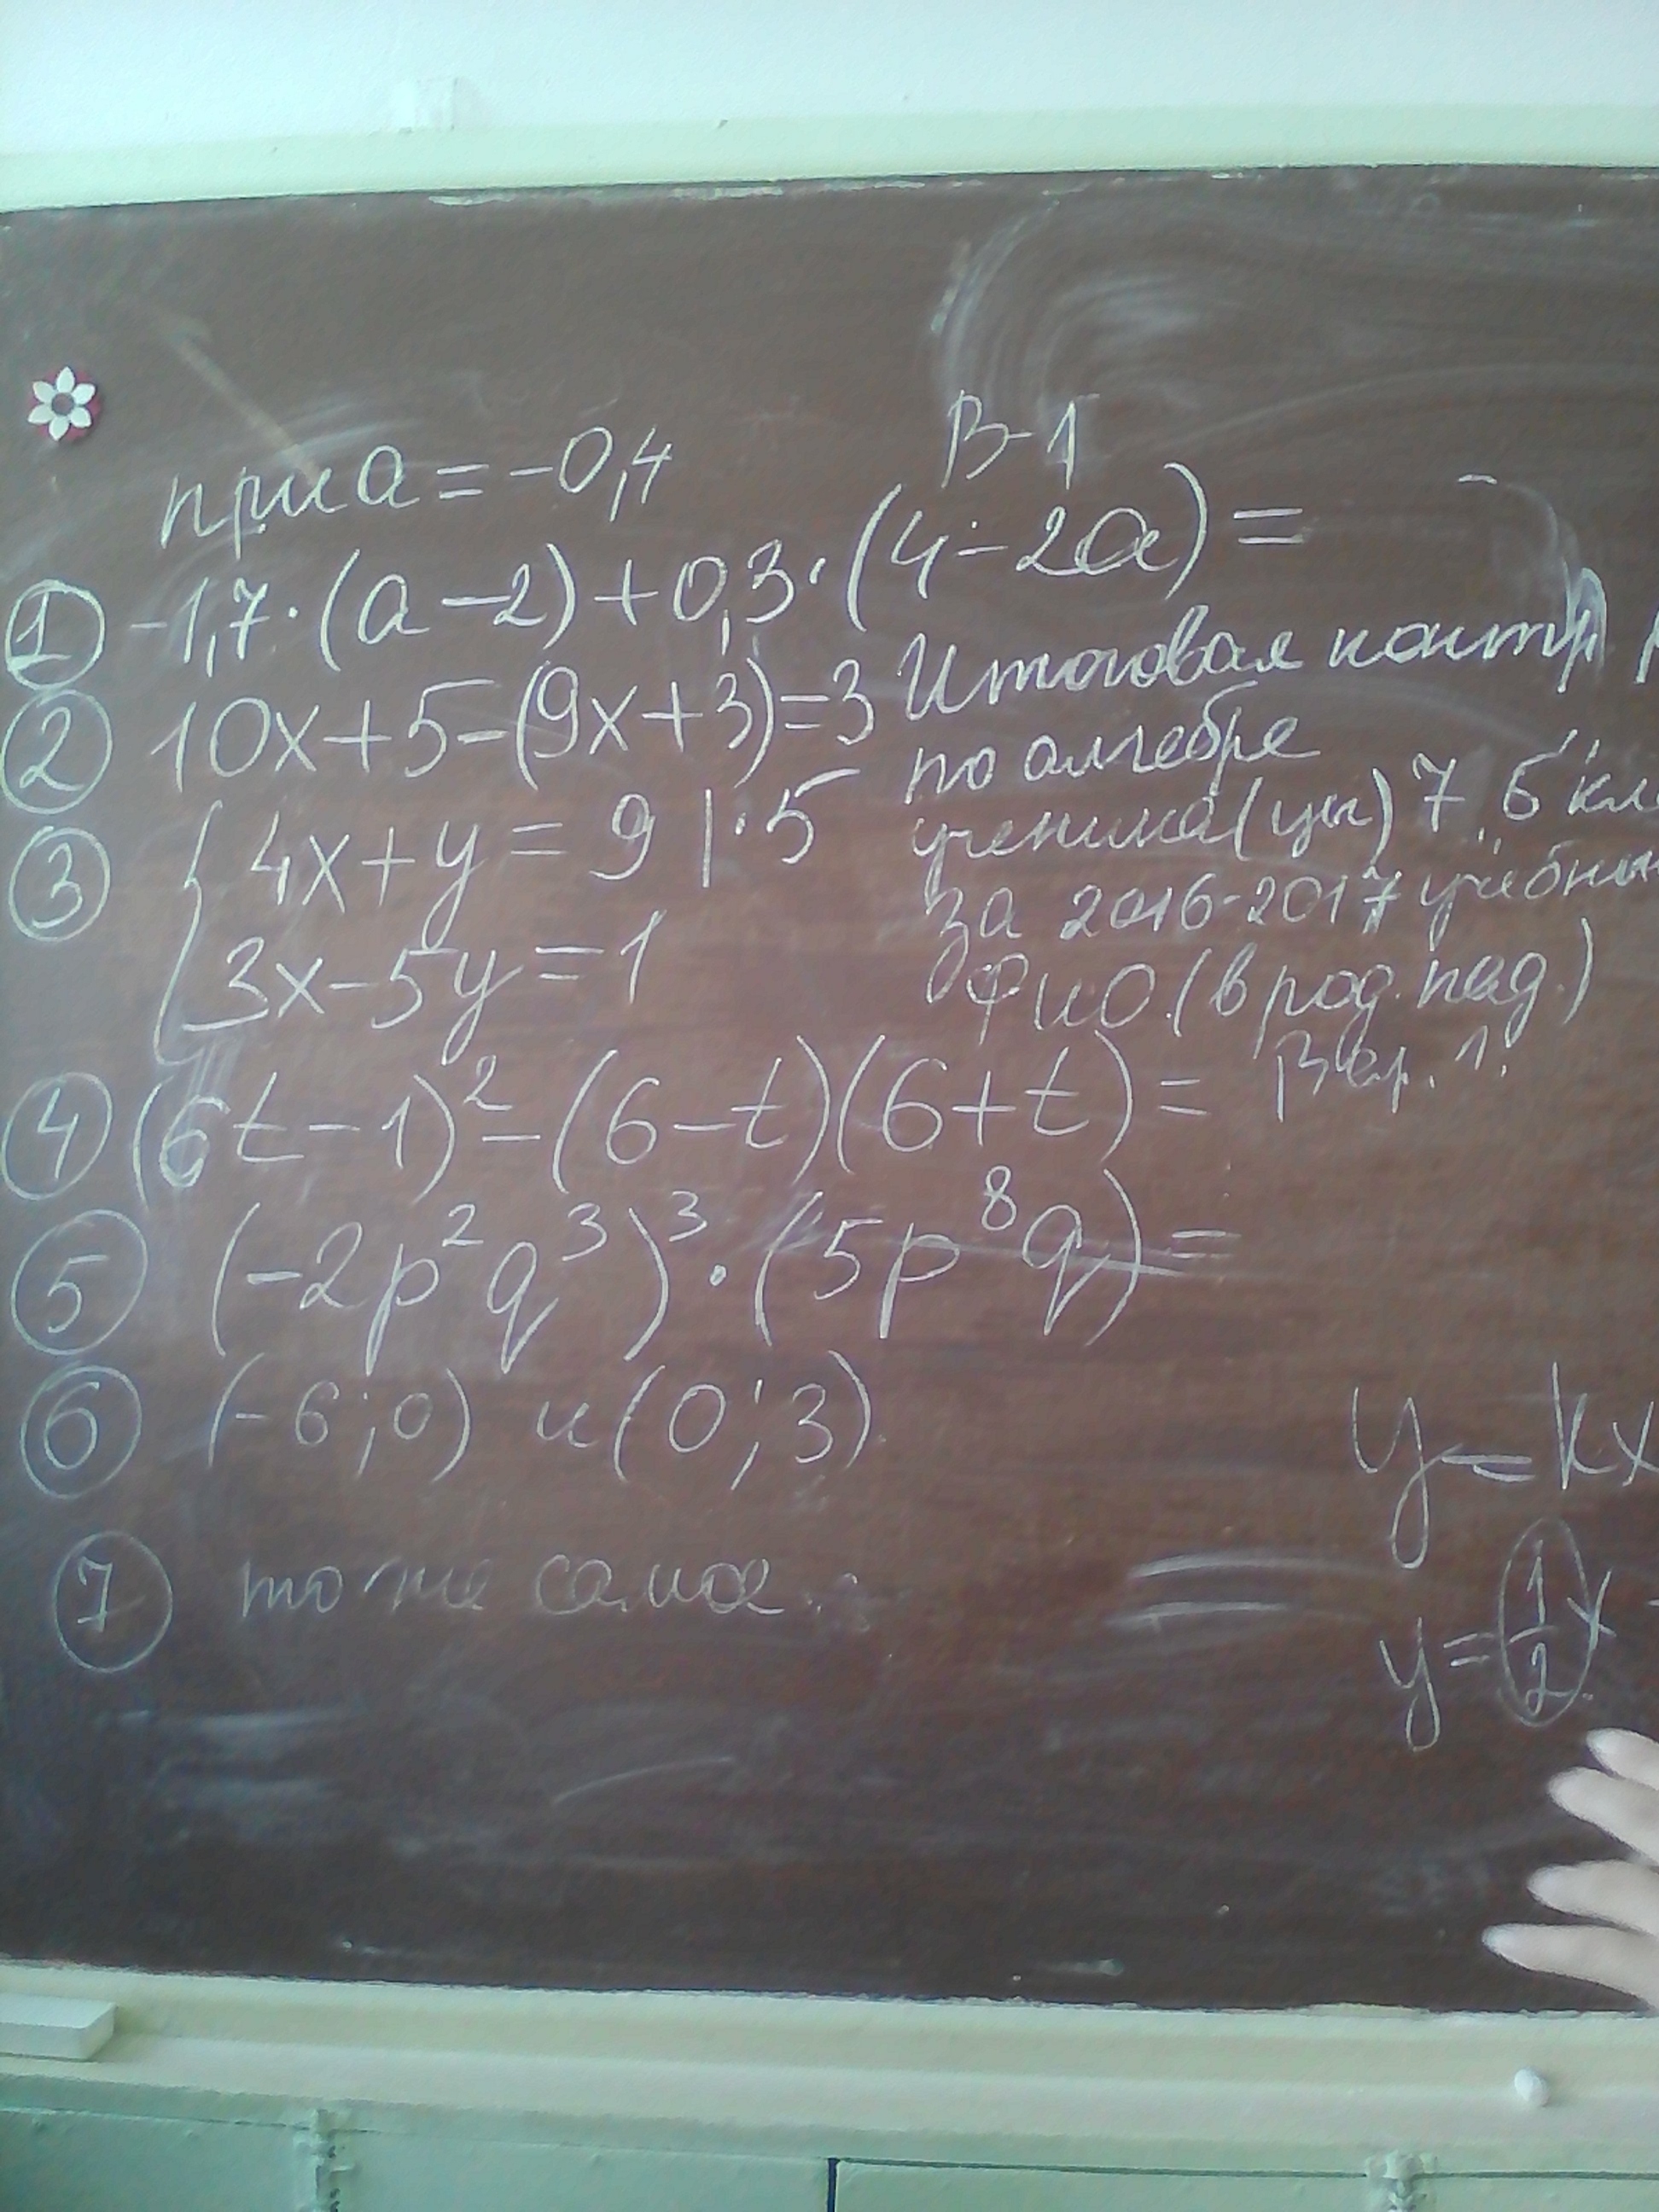 В-1
при a = -0,4
① -1,7·(a-2)+0,3·(4-2a)=
② 10x+5-(9x+3)=3
③ { 4x+y=9 |·5
3x-5y=1
④ (6t-1)²-(6-t)(6+t)=
⑤ (-2p²q³)³·(5p⁸q)=
⑥ (-6;0) и (0;3)
⑦ то же самое.
Итоговая контр р
по алгебре
ученика(цы) 7 "Б" кла
за 2016-2017 учебны
ФИО. (в род. пад.)
Вар. 1.
y = kx
y = 1/2 x